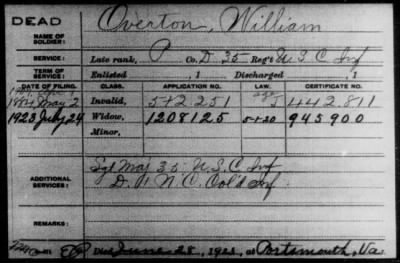 DEAD
NAME OF SOLDIER: Overton, William
SERVICE: Late rank, P Co. D 35 Reg't U S C Inf
TERM OF SERVICE: Enlisted , 1 Discharged , 1
DATE OF FILING. CLASS. APPLICATION NO. LAW. CERTIFICATE NO.
May 2 Invalid, 542.251 442.811
1923 July 24 Widow, 1208125 5-1-20 945900
Minor,
ADDITIONAL SERVICES: Sgt Maj 35 U.S. C Inf
D. 1 N. C. Col'd Inf.
REMARKS:
Died June 28, 1923, at Portsmouth, Va